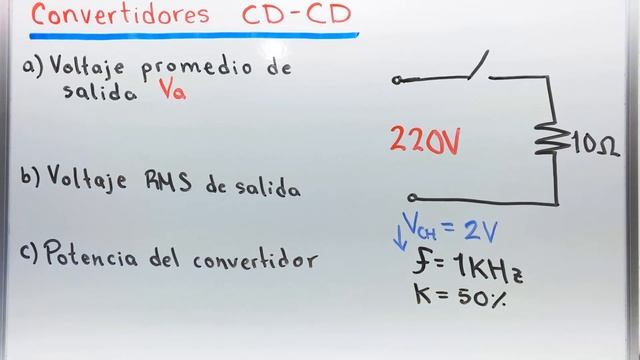 Convertidores CD-CD
a) Voltaje promedio de
salida Va
b) Voltaje RMS de salida
c) Potencia del convertidor
220V
10Ω
VCH = 2V
f = 1KHz
K = 50%